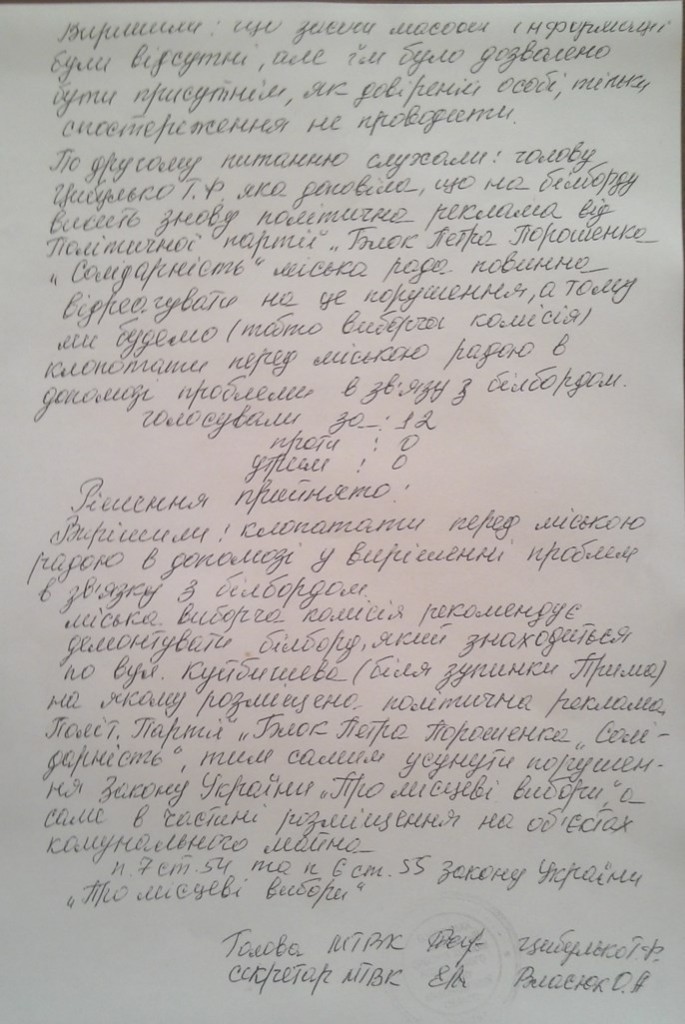 Вирішили: що засоби масової інформації
були відсутні, але їм було дозволено
бути присутнім, як довіреній особі, тільки
спостереження не проводити.
По другому питанню слухали: голову
Цибулько Т.Ф. яка доповіла, що на білборду
висить знову політична реклама від
Політичної партії „Блок Петра Порошенка
„Солідарність" міська рада повинна
відреагувати на це порушення, а тому
ми будемо (тобто виборча комісія)
клопотати перед міською радою в
допомозі проблеми в зв'язу з білбордом.
голосували за: 12
проти : 0
утрим : 0
Рішення прийнято!
Вирішили: клопатати перед міською
радою в допомозі у вирішенні проблем
в зв'язку з білбордом.
міська виборча комісія рекомендує
демонтувати білборд, який знаходиться
по вул. Куйбишева (біля зупинки Прима)
на якому розміщено політична реклама
Політ. Партії „Блок Петра Порошенка „Солі-
дарність", тим самим усунути порушен-
ня Закону України „Про місцеві вибори," а
саме в частині розміщення на об'єктах
комунального майна
п. 7 ст. 54 та п 6 ст. 55 закону України
„Про місцеві вибори"
Голова МТВК Цибулько Т.Ф.
секретар МТВК Власюк О.А